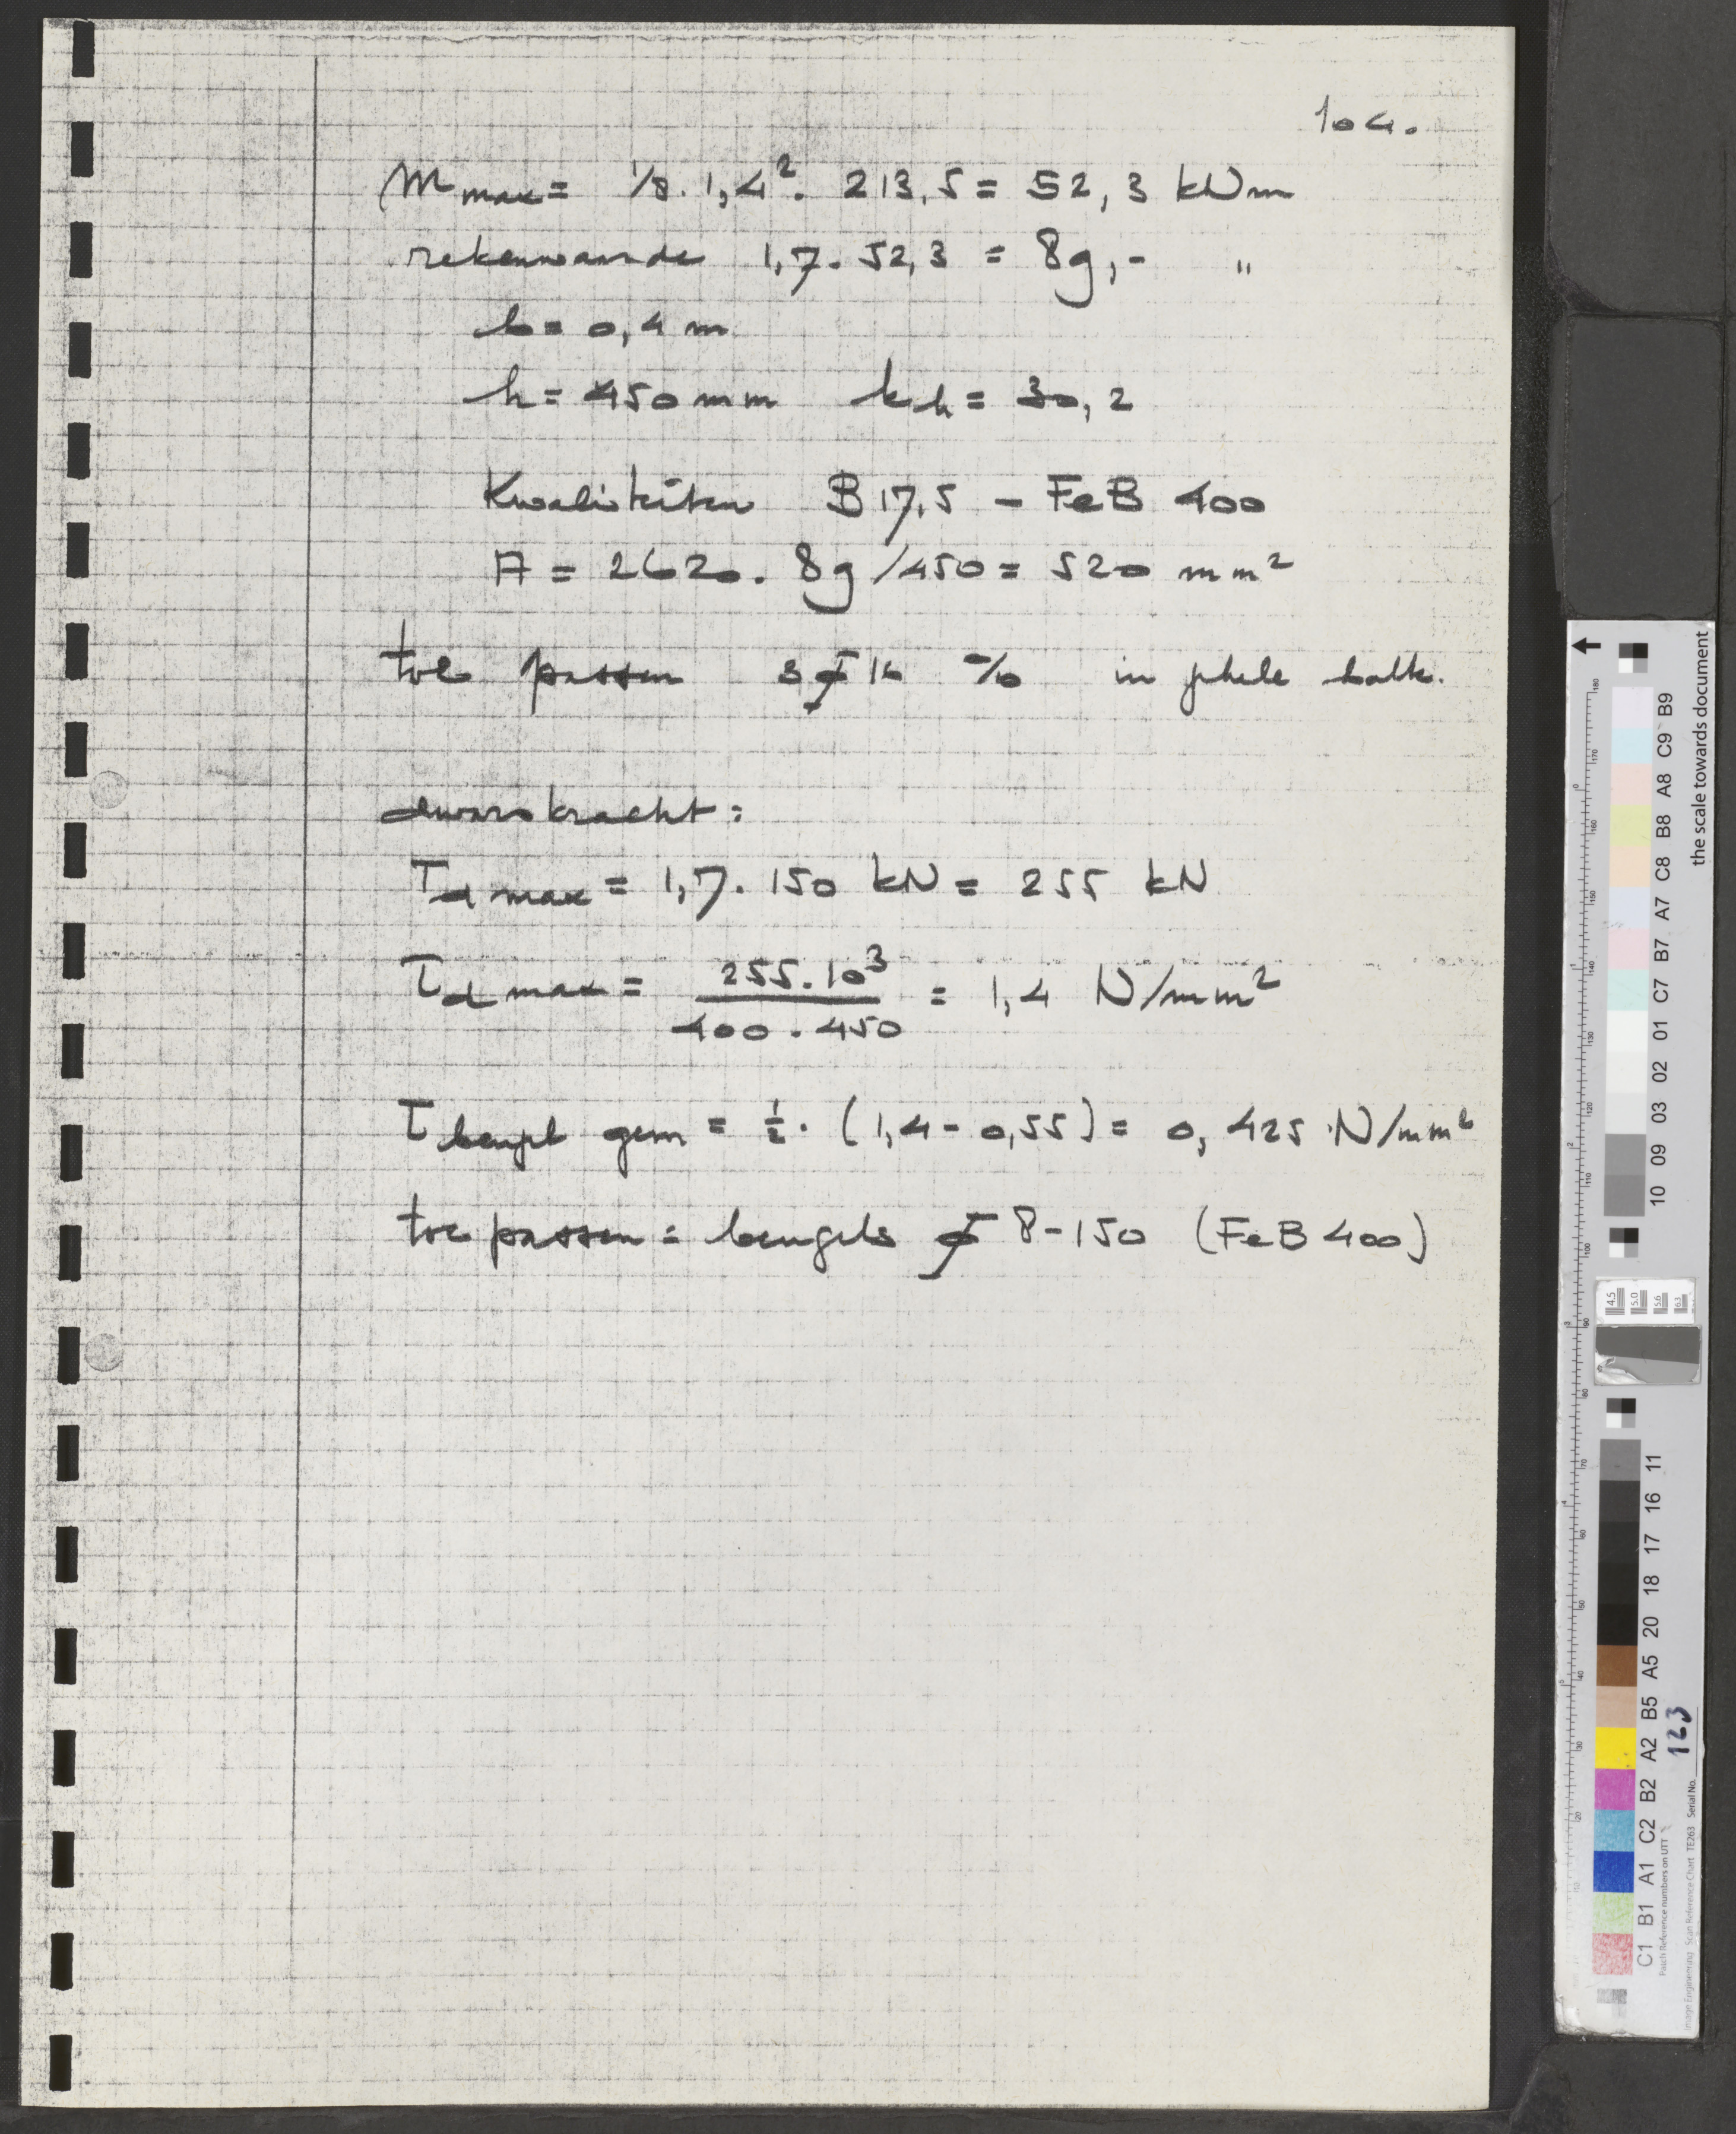 104.
Mmax = 1/8. 1,4². 213,5 = 52,3 kNm
rekenwaarde 1,7. 52,3 = 89,- "
b = 0,4 m
h = 450 mm kh = 30,2
Kwaliteiten B 17,5 - FeB 400
A = 2620. 89/450 = 520 mm²
toe passen 3ø16 in gehele balk.
dwarskracht:
Td max = 1,7. 150 kN = 255 kN
τd max = 255.10³ / 400.450 = 1,4 N/mm²
τbeugel gem = ½. (1,4 - 0,55) = 0,425 N/mm²
toe passen = beugels ø 8-150 (FeB 400)
the scale towards document
C1 B1 A1 C2 B2 A2 B5 A5 20 18 17 16 11
10 09 03 02 01 C7 B7 A7 C8 B8 A8 C9 B9
4.5 5.0 5.6 6.3
Image Engineering Scan Reference Chart TE263 Serial No. 123
Patch Reference numbers on UTT